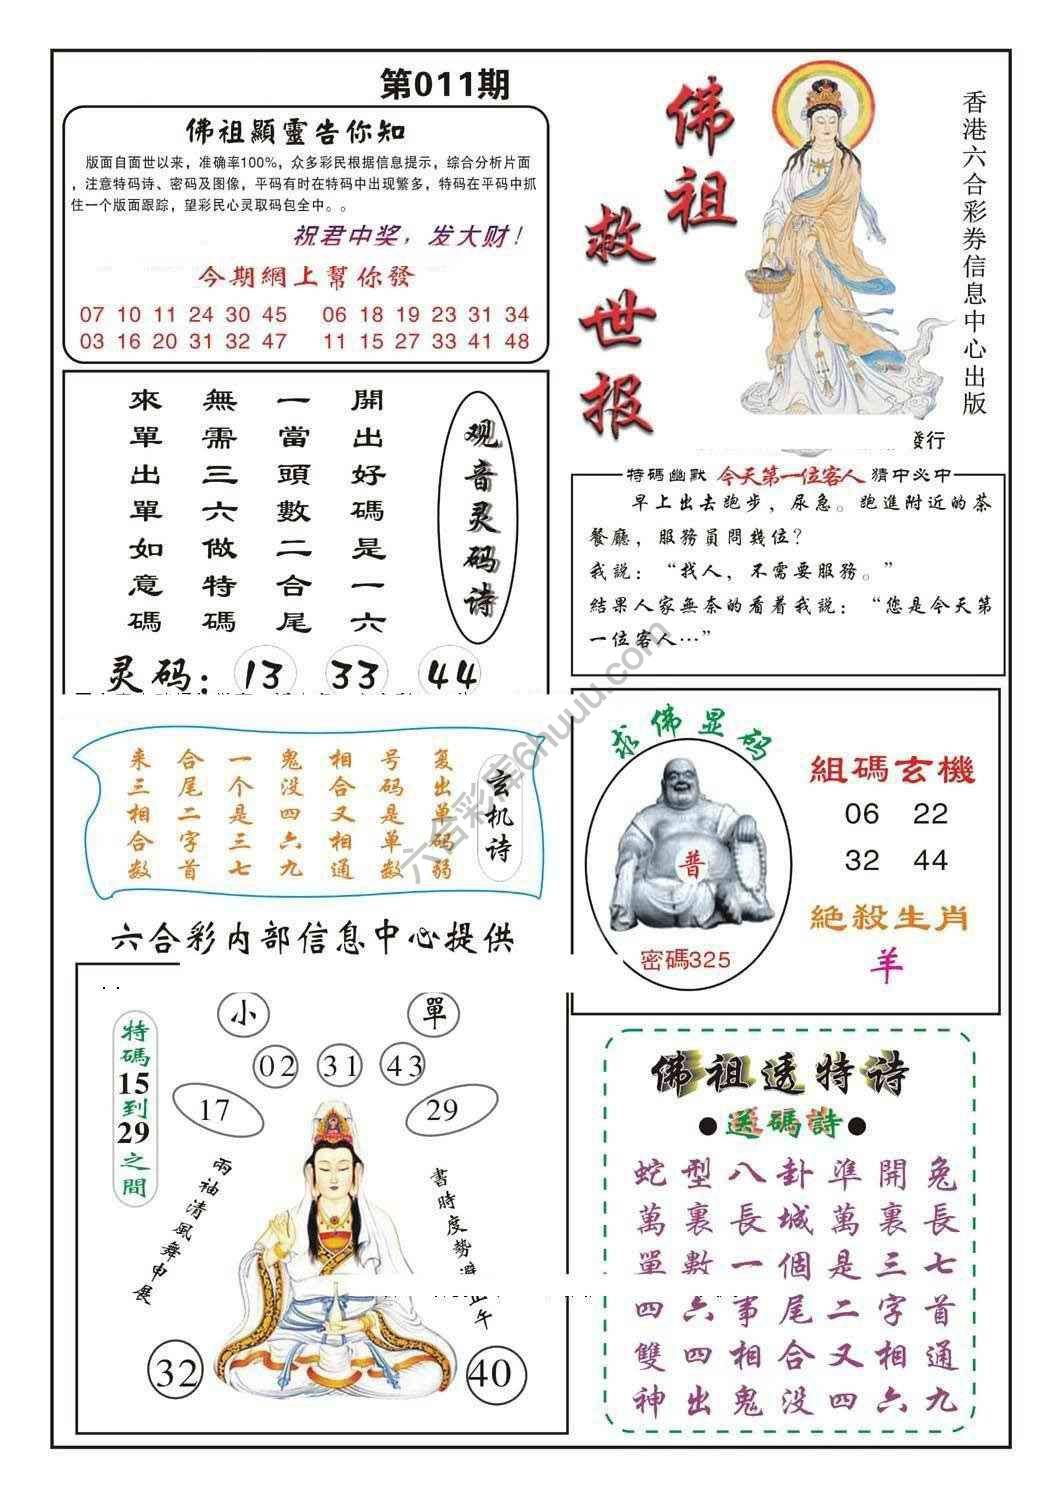 第011期
佛祖顯靈告你知
版面自面世以来，准确率100%，众多彩民根据信息提示，综合分析片面
，注意特码诗、密码及图像，平码有时在特码中出现繁多，特码在平码中抓
住一个版面跟踪，望彩民心灵取码包全中。。
祝君中奖，发大财！
今期網上幫你發
07 10 11 24 30 45 06 18 19 23 31 34
03 16 20 31 32 47 11 15 27 33 41 48
佛祖
救世报
香港六合彩券信息中心出版
發行
观音灵码诗
開出好碼是一六
一當頭數二合尾
無需三六做特碼
來單出單如意碼
灵码：13 33 44
特碼幽默 今天第一位客人 猜中必中
早上出去跑步，尿急。跑進附近的茶
餐廳，服務員問幾位？
我説：“找人，不需要服務。”
結果人家無奈的看着我説：“您是今天第
一位客人…”
玄机诗
复出单码弱
号码是单数
相合又相通
鬼没四六九
一个是三七
合尾二字首
来三相合数
求佛显码
普
密碼325
組碼玄機
06 22
32 44
絕殺生肖
羊
六合彩内部信息中心提供
小 單
02 31 43
17 29
特碼15到29之間
兩袖清風舞中展
書時度勢避正午
32 40
佛祖透特诗
●送碼詩●
蛇型八卦準開兔
萬裏長城萬裏長
單數一個是三七
四六事尾二字首
雙四相合又相通
神出鬼没四六九
六合彩库6huuu.com